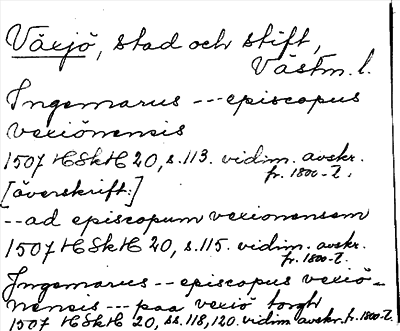 Växjö, stad och stift,
Västm. l.
Ingemarus --- episcopus
vexiönensis
1507 HSkH 20, s. 113. vidim. avskr.
fr. 1800-T.
[överskrift:]
-- ad episcopum vexionensem
1507 HSkH 20, s. 115. vidim. avskr.
fr. 1800-T.
Ingemarus -- episcopus vexiö-
nensis --- paa vexiö torght
1507 HSkH 20, ss. 118, 120. vidim. avskr. fr. 1800-T.